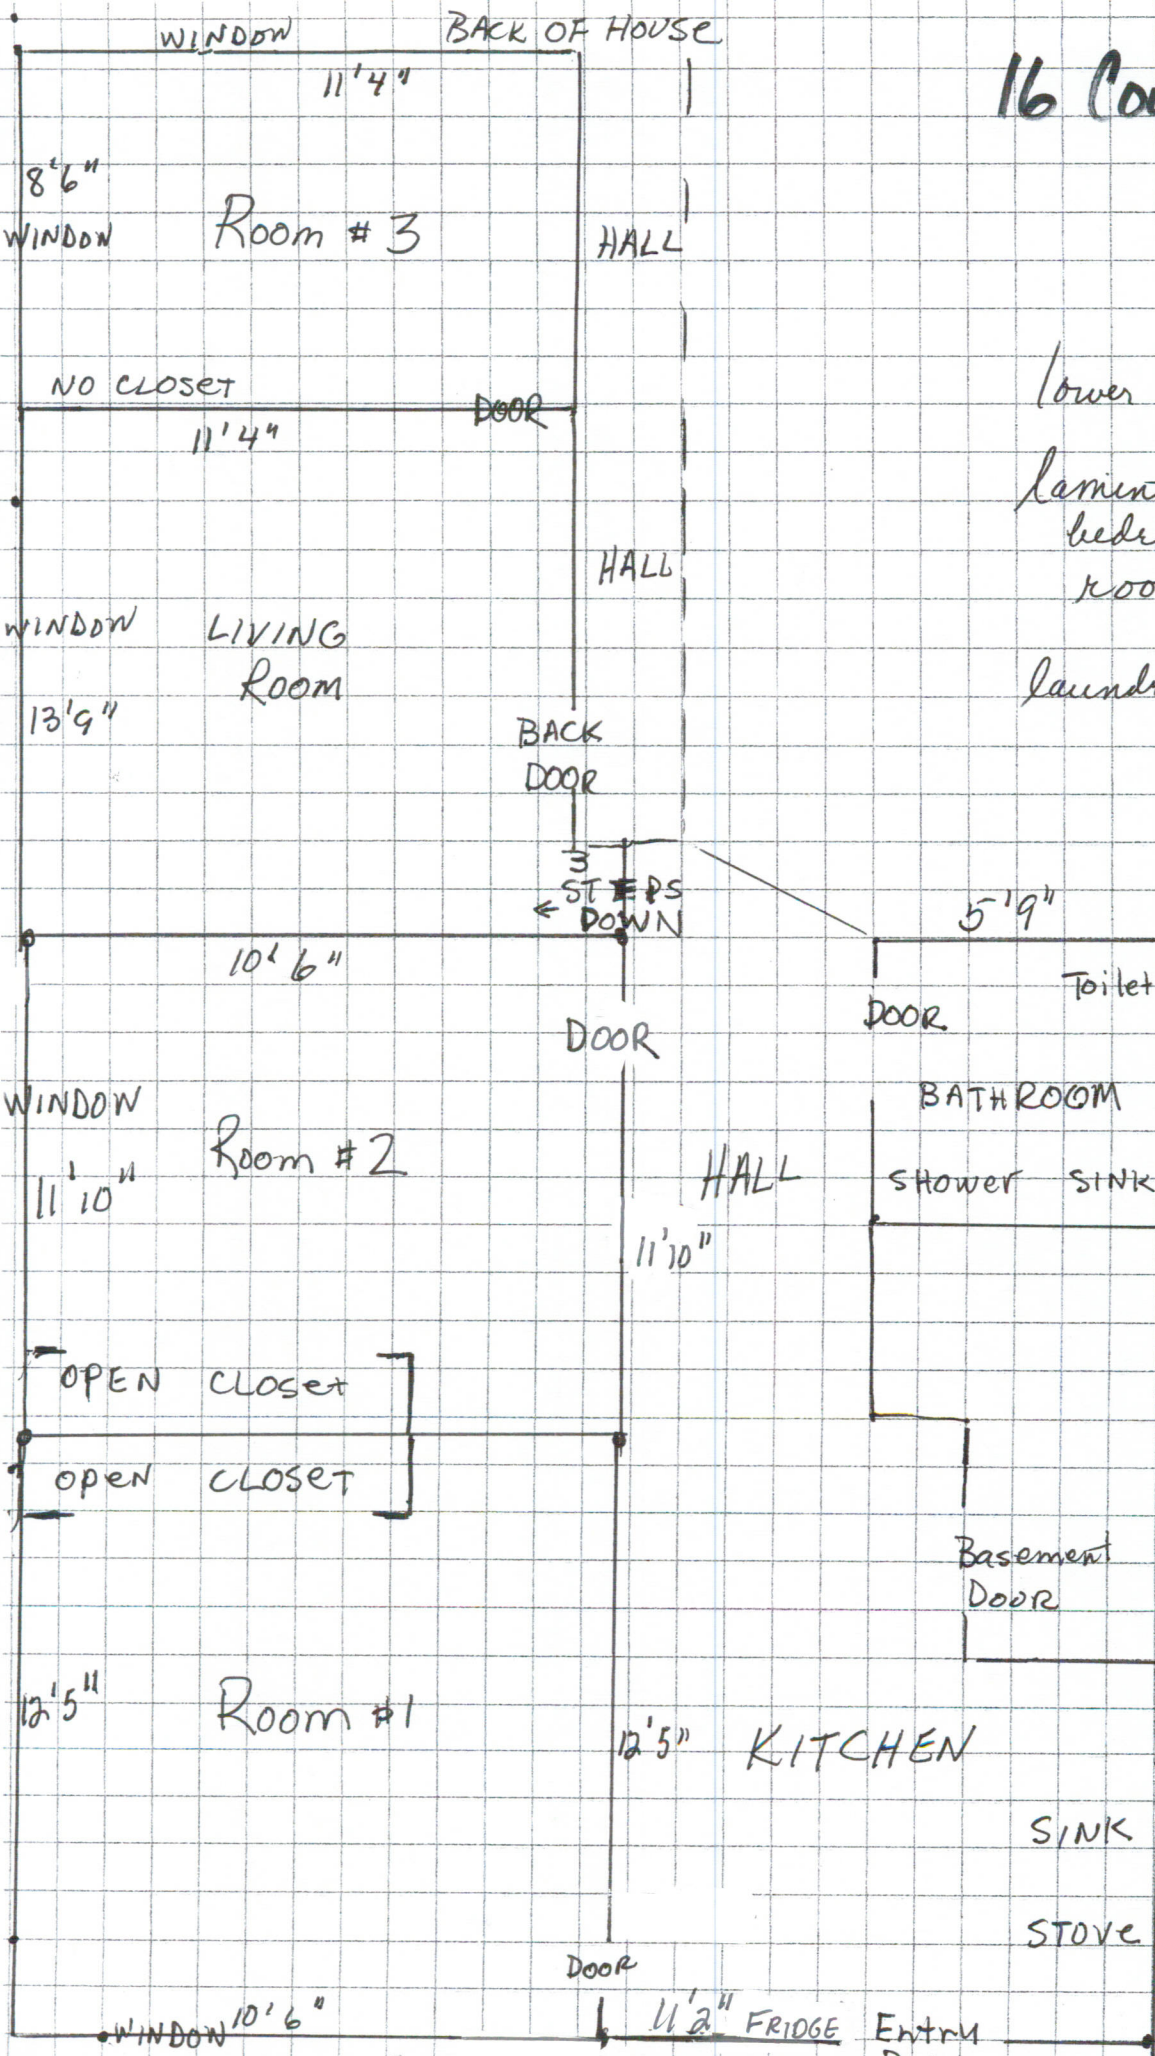 WINDOW BACK OF HOUSE
11'4"
16
8'6"
WINDOW Room #3 HALL
NO CLOSET
DOOR
lower
11'4"
HALL
WINDOW LIVING
Room
13'9"
BACK
DOOR
3
STEPS
← DOWN
5'9"
10'6"
Toilet
DOOR
DOOR
WINDOW
BATHROOM
Room #2
HALL
SHOWER SINK
11'10"
11'10"
OPEN CLOSET
OPEN CLOSET
Basement
DOOR
12'5" Room #1
12'5" KITCHEN
SINK
STOVE
DOOR
WINDOW 10'6" 11'2" FRIDGE Entry